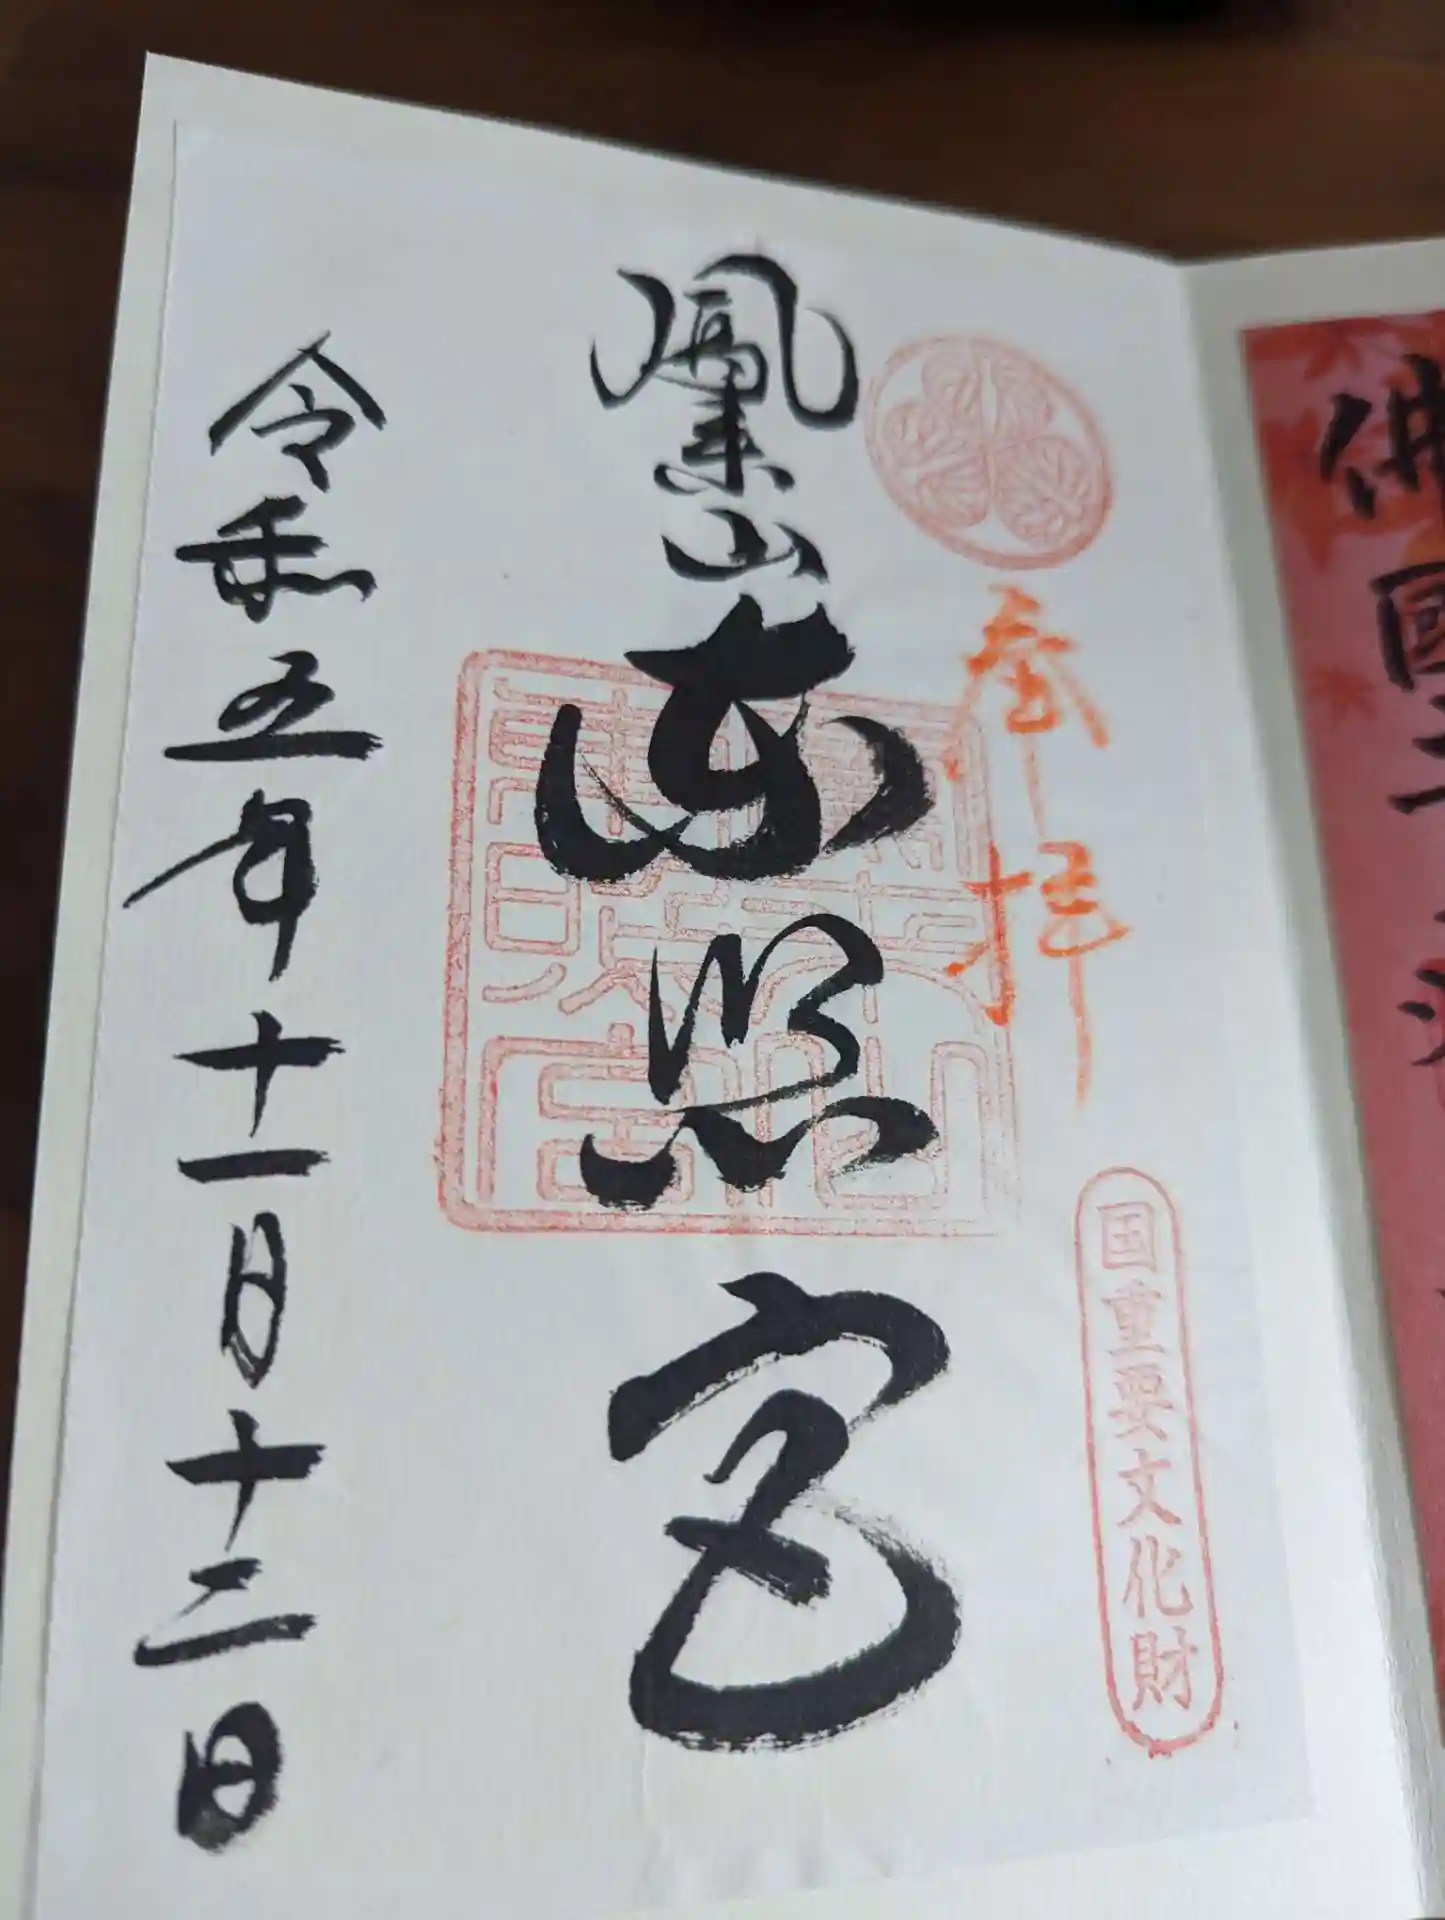 佛國
奉拝
国重要文化財
鳳来山東照宮
鳳来山
東照宮
令和五年十一月十二日